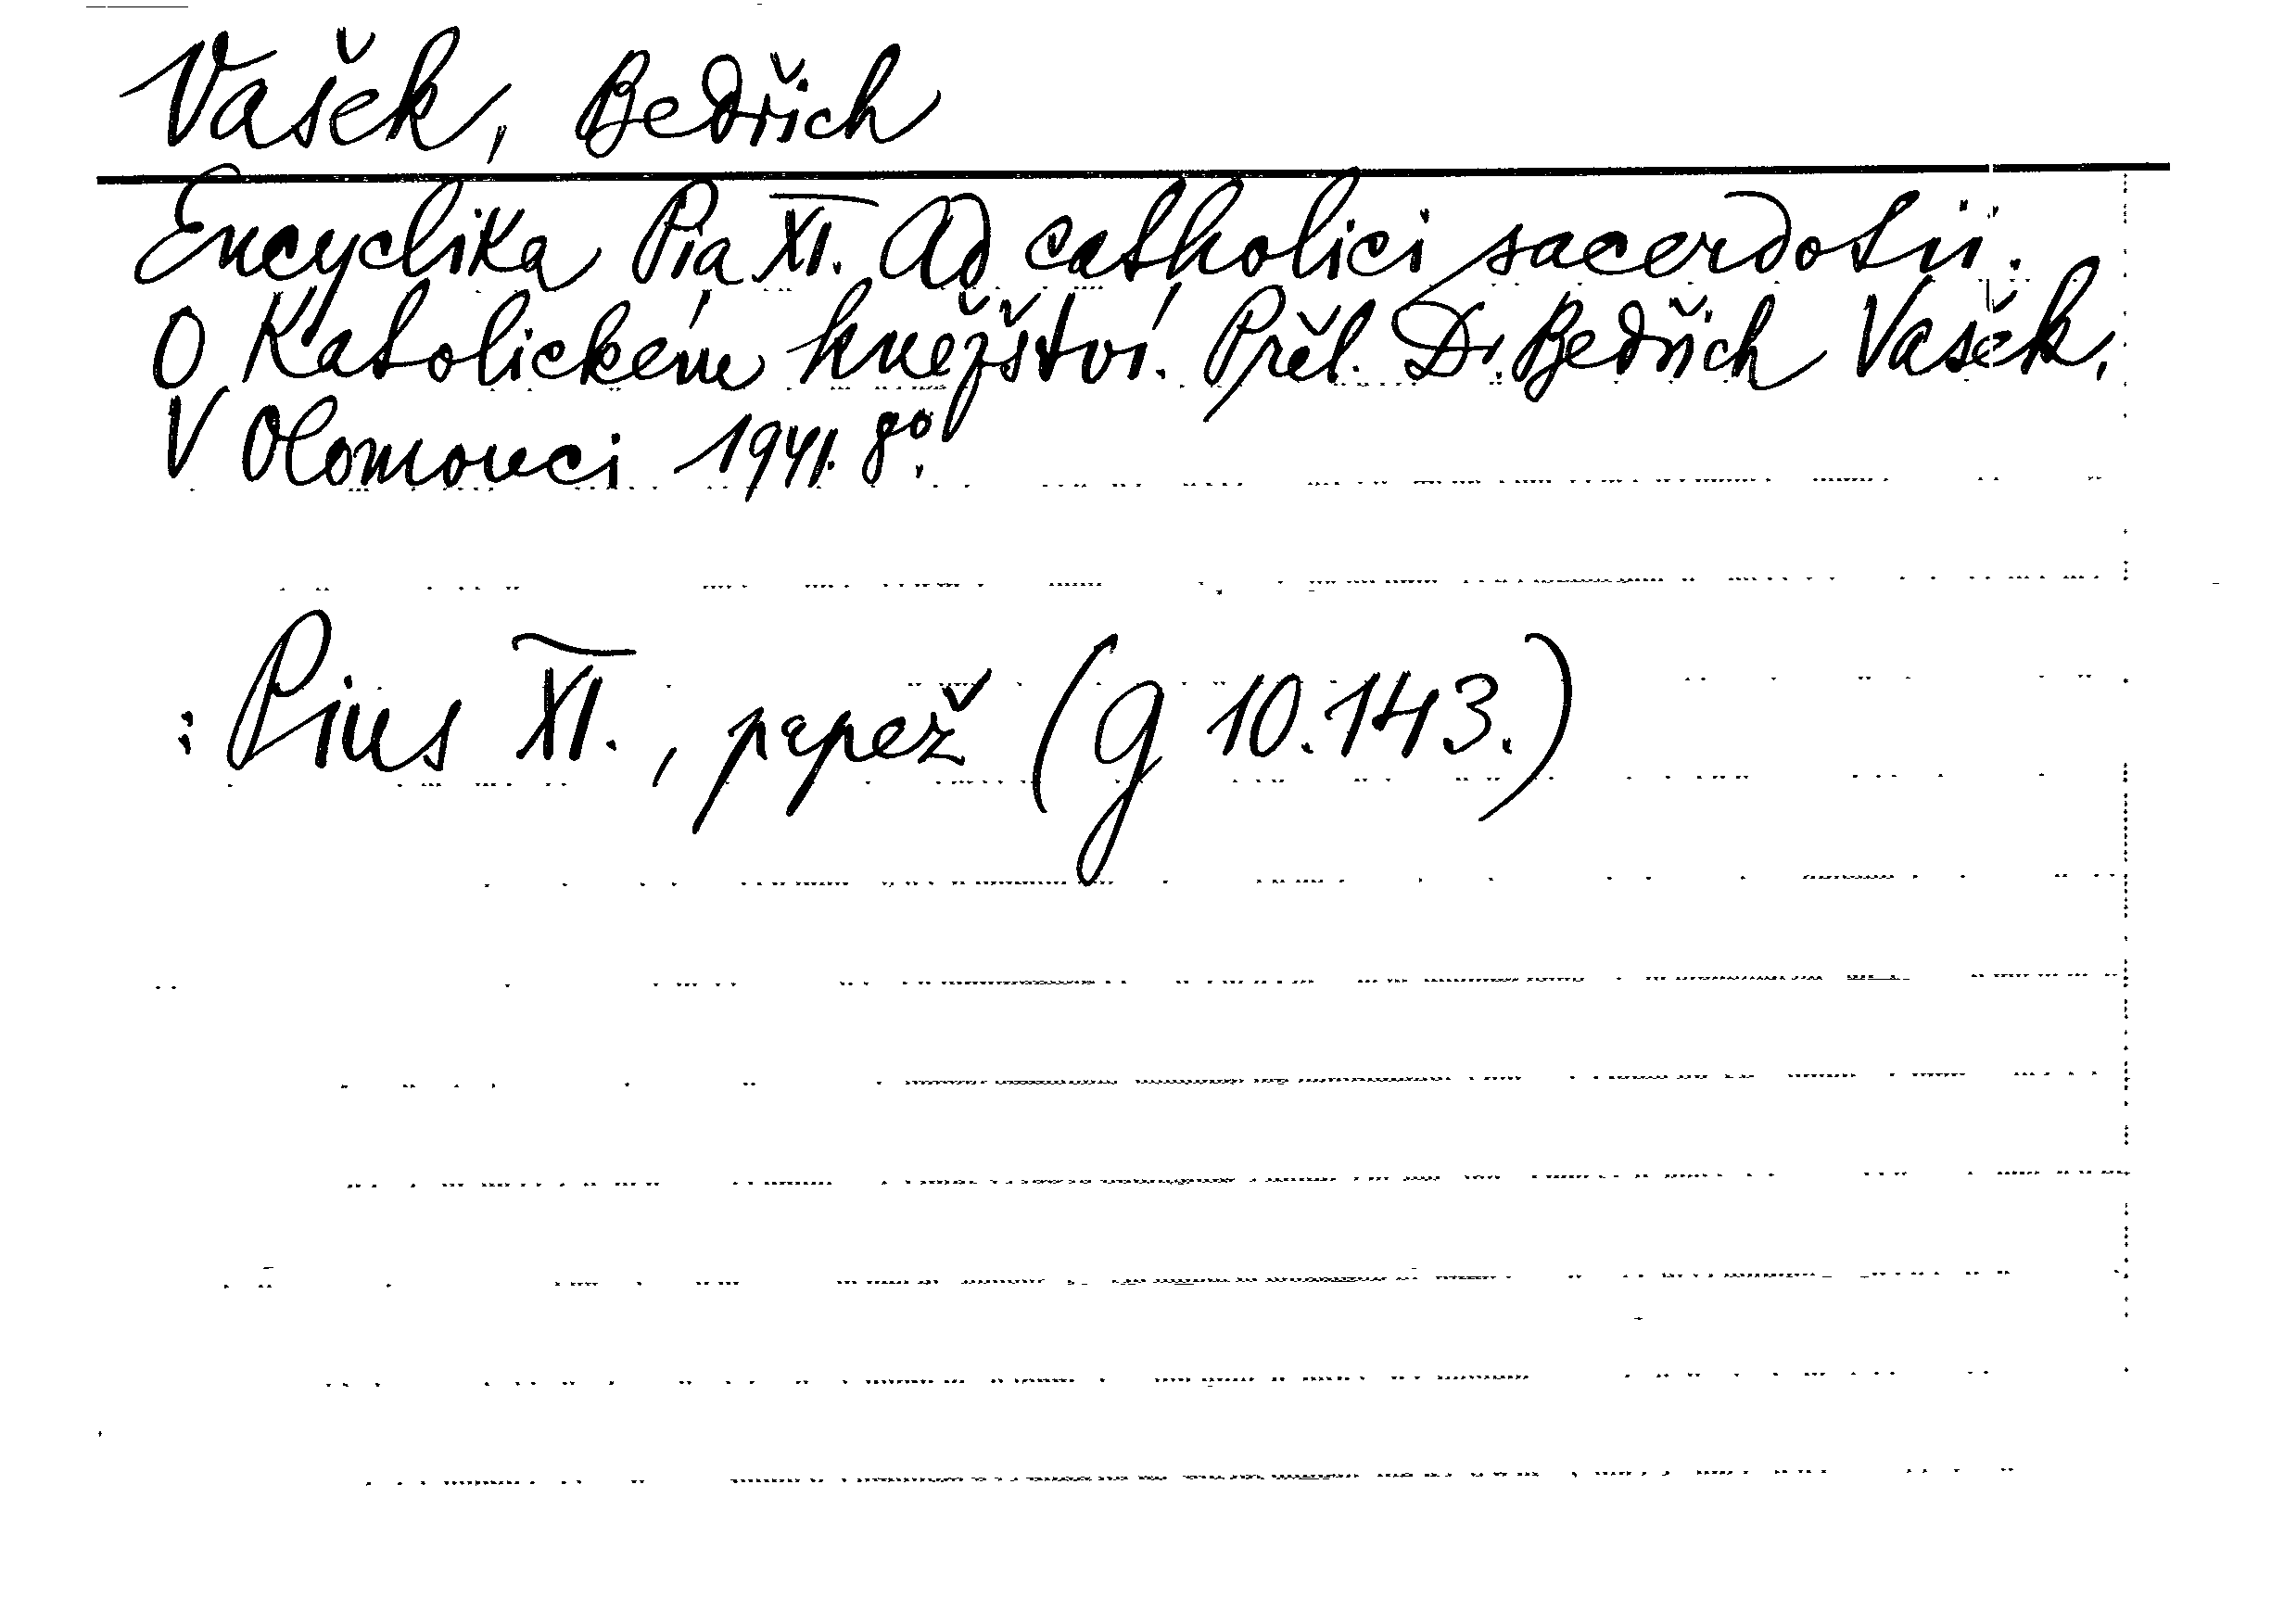 Vašek, Bedřich
Encyclika Pia XI. Ad catholici sacerdotii.
O Katolickém kněžství. Přel. Dr Bedřich Vašek.
V Olomouci 1941. 8º.
: Pius XI., papež (g 10.143.)